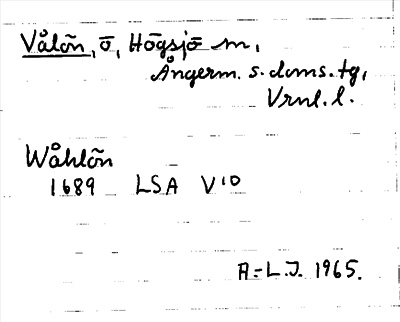 Vålön, ö, Högsjö sn,
Ångerm. s. doms. tg,
Vrnl. l.
Wåhlön
1689 LSA V¹⁰
A-L.J. 1965.